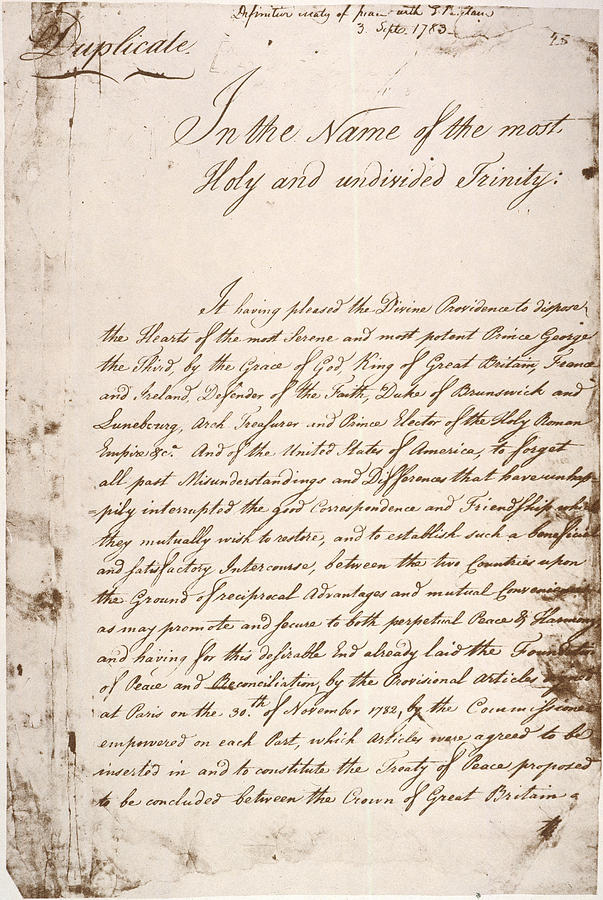 Duplicate.
Definitive treaty of peace with G. Britain
3. Sept. 1783
In the Name of the most
Holy and undivided Trinity:
It having pleased the Divine Providence to dispose
the Hearts of the most Serene and most potent Prince George
the Third, by the Grace of God, King of Great Britain, France
and Ireland, Defender of the Faith, Duke of Brunswick and
Lunebourg, Arch Treasurer and Prince Elector of the Holy Roman
Empire &c.a And of the United States of America, to forget
all past Misunderstandings and Differences that have unhap
=pily interrupted the good Correspondence and Friendship which
they mutually wish to restore; and to establish such a beneficial
and satisfactory Intercourse, between the two Countries upon
the Ground of reciprocal Advantages and mutual Convenience
as may promote and secure to both perpetual Peace & Harmony
and having for this desirable End already laid the Foundation
of Peace and Reconciliation, by the Provisional Articles signed
at Paris on the 30.th of November 1782, by the Commissioners
empowered on each Part, which Articles were agreed to be
inserted in and to constitute the Treaty of Peace proposed
to be concluded between the Crown of Great Britain